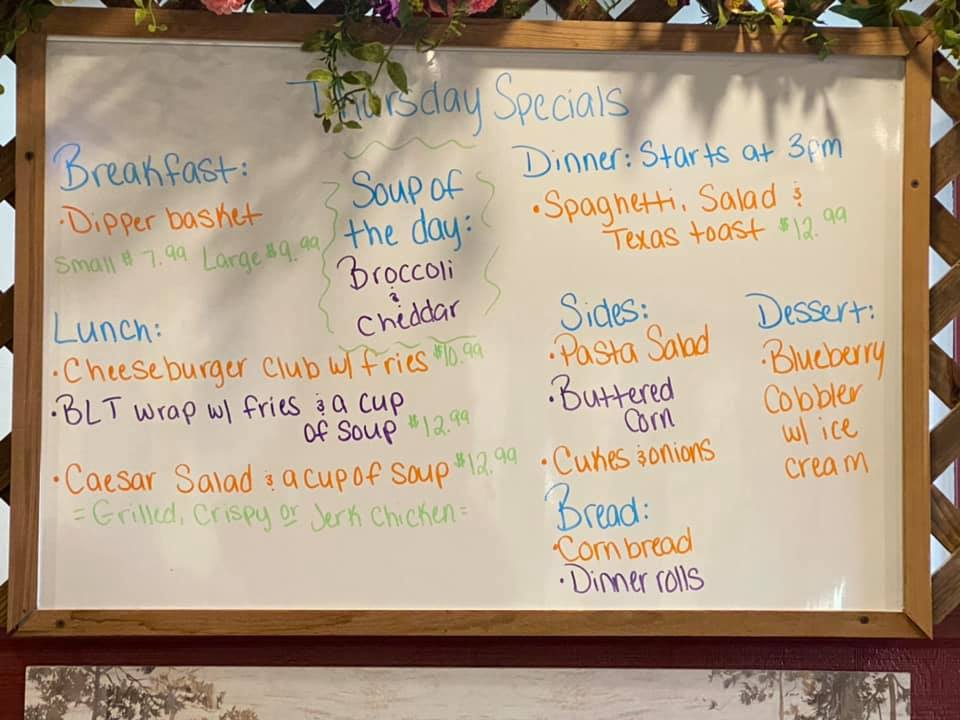 Thursday Specials
Breakfast:
• Dipper basket
Small $7.99 Large $9.99
Soup of
the day:
Broccoli
&
cheddar
Lunch:
• Cheeseburger club w/ fries $10.99
• BLT wrap w/ fries & a cup
of soup $12.99
• Caesar Salad & a cup of soup $12.99
= Grilled, Crispy or Jerk Chicken =
Dinner: Starts at 3pm
• Spaghetti, Salad &
Texas toast $12.99
Sides:
• Pasta Salad
• Buttered
Corn
• Cukes & onions
Bread:
• Corn bread
• Dinner rolls
Dessert:
• Blueberry
Cobbler
w/ ice
cream